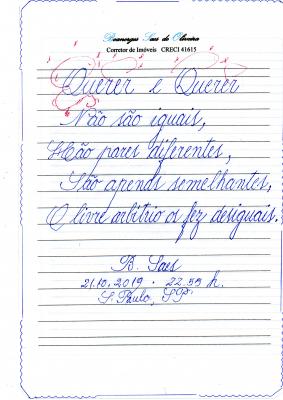 Boanerges Saes de Oliveira
Corretor de Imóveis CRECI 41615
Querer e Querer
Não são iguais,
São pares diferentes,
São apenas semelhantes,
O livre arbítrio os fez desiguais.
B. Saes
21.10.2019 · 22:55 h.
S. Paulo, SP.